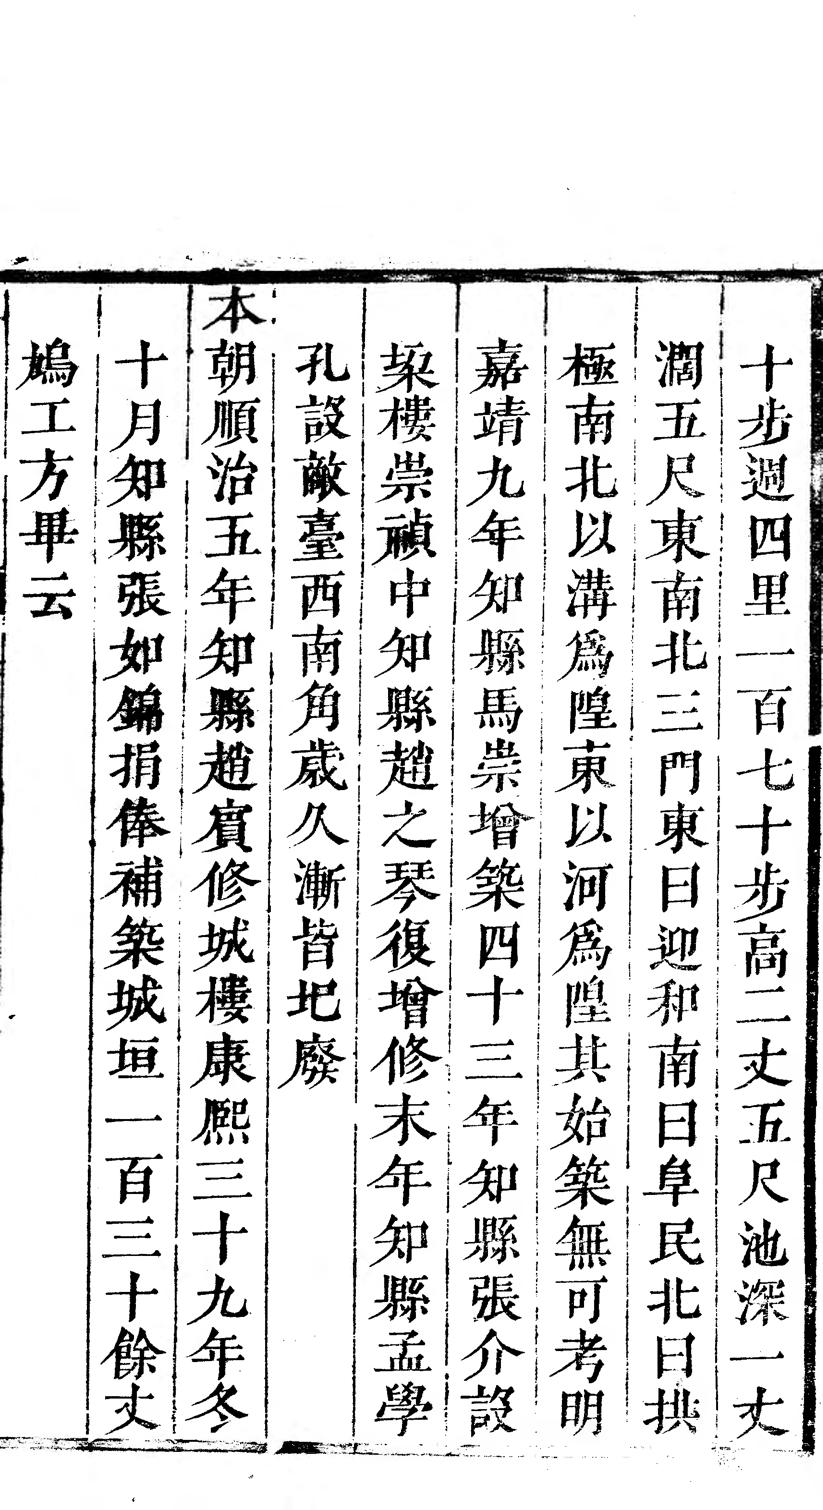 十步週四里一百七十步高二丈五尺池深一丈
濶五尺東南北三門東曰迎和南曰阜民北曰拱
極南北以溝爲隍東以河爲隍其始築無可考明
嘉靖九年知縣馬崇增築四十三年知縣張介設
垜樓崇禎中知縣趙之琴復增修末年知縣孟學
孔設敵臺西南角歳久漸皆圯廢
本朝順治五年知縣趙賔修城樓康熈三十九年冬
十月知縣張如錦捐俸補築城垣一百三十餘丈
鳩工方畢云